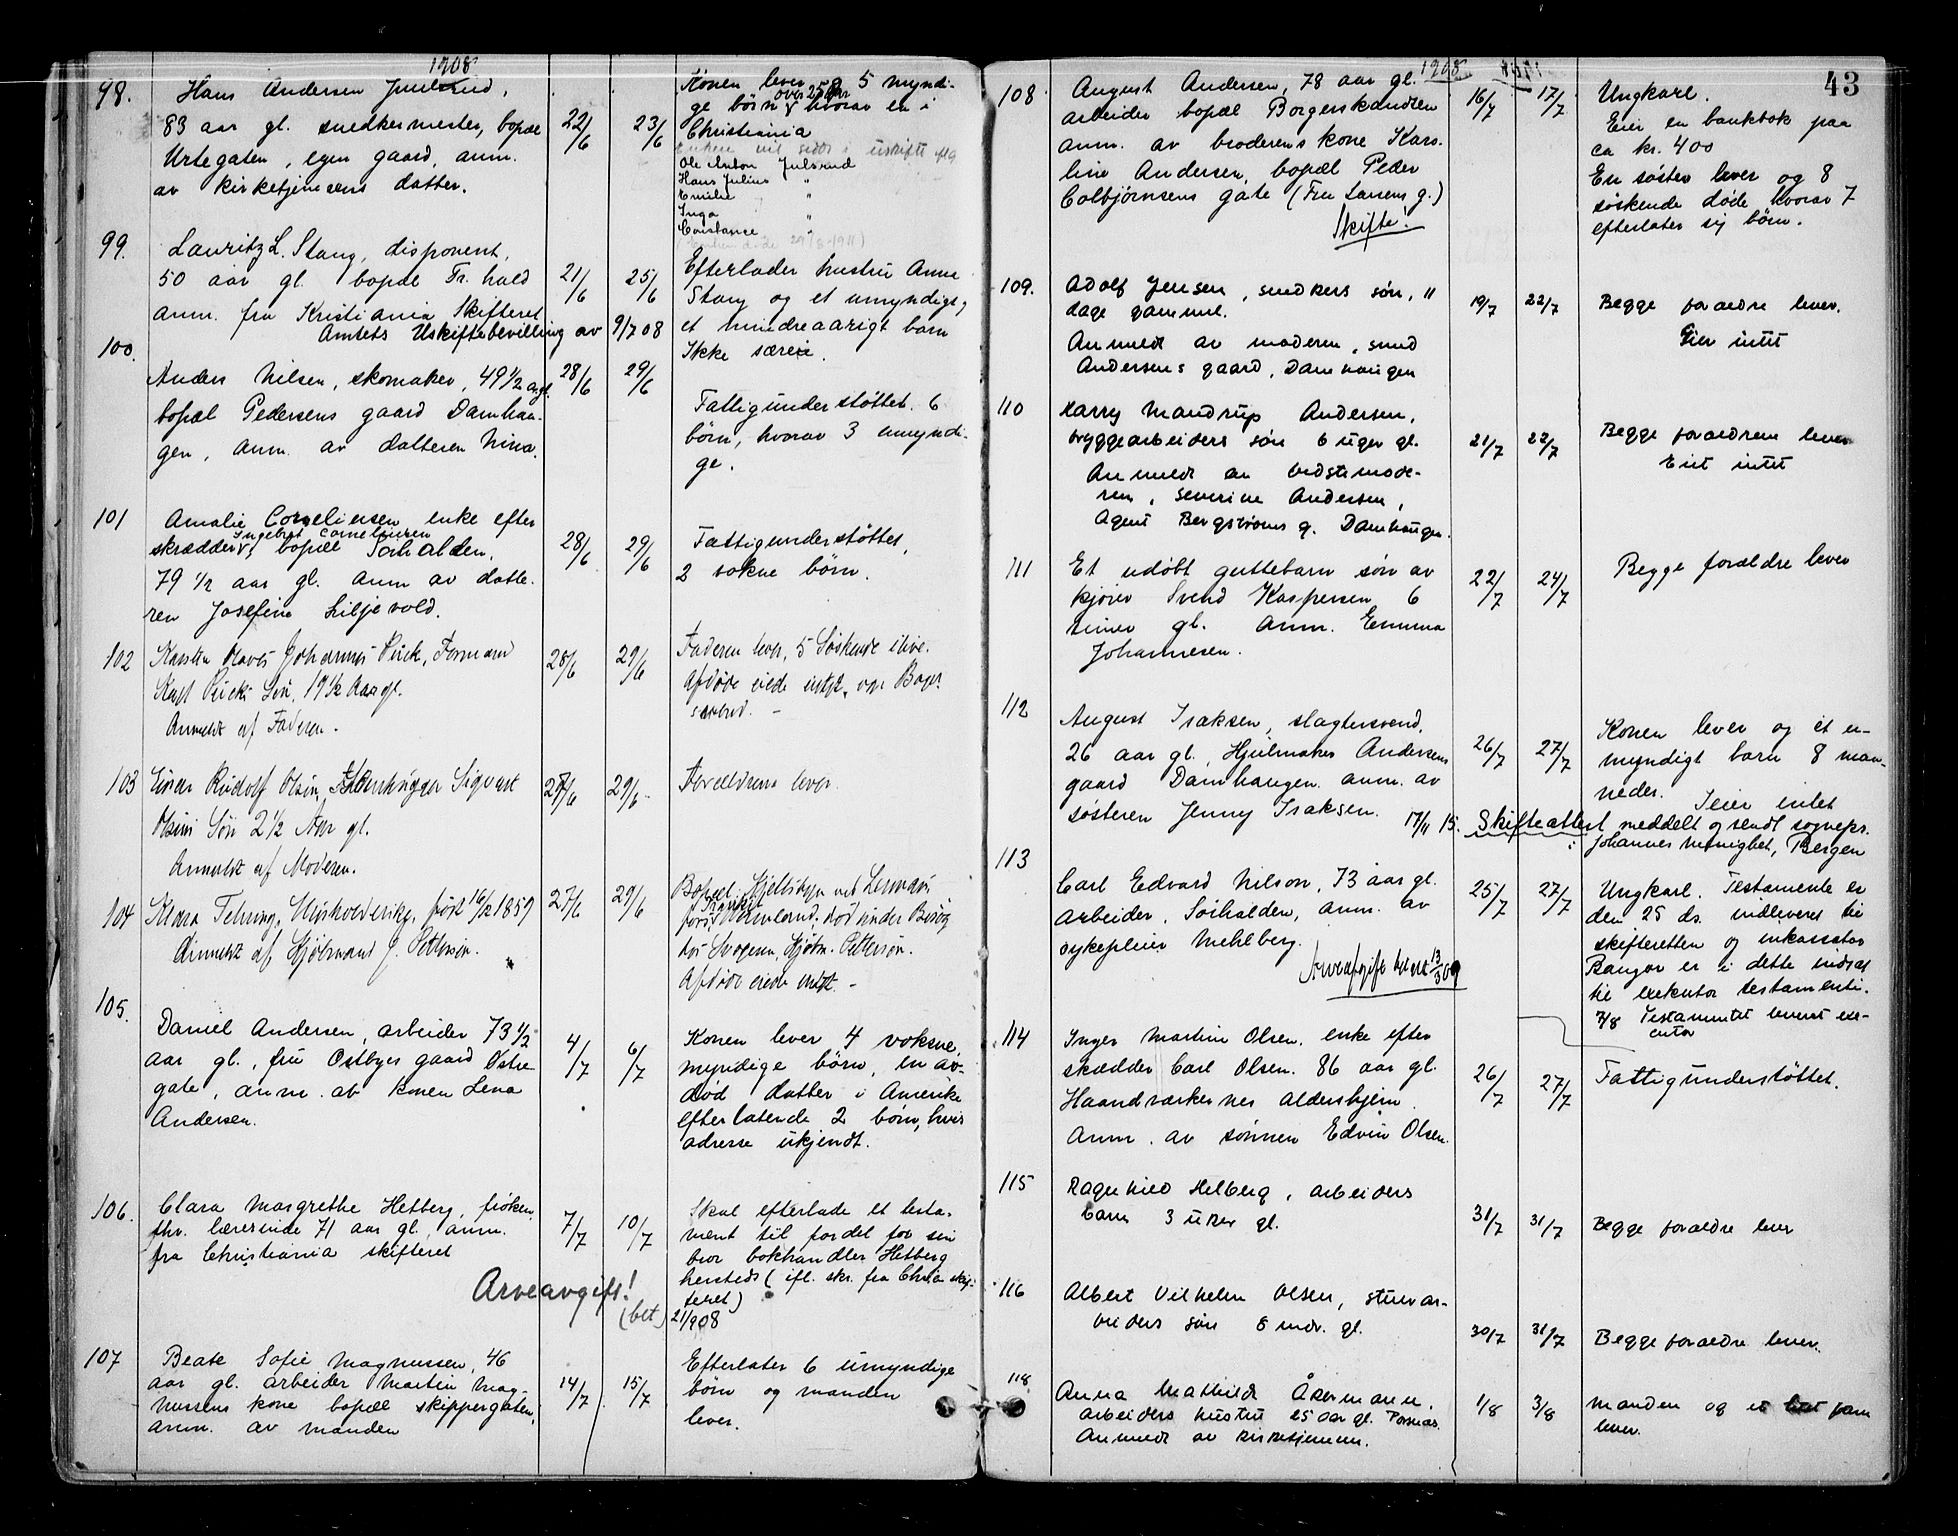 1908
98.
Hans Andersen Juulsrud,
83 aar gl. snedkermester, bopæl
Urtegaten, egen gaard, anm.
av kirketjenerens datter.
22/6
23/6
Konen lever og 5 myndi-
over 25 aar
ge børn hvorav en i
Christiania
Enken vil sidde i uskifte
Ole Anton Julsrud
Hans Julius "
Emilie "
Inga "
Constance "
(Enken døde 29/8-1911)
99.
Lauritz L. Stang, disponent,
50 aar gl. bopæl Fr.hald
anm. fra Kristiania Skifteret
Amtets Uskiftebevilling av 9/7 08
21/6
25/6
Efterlader hustru Anna
Stang og et umyndigt,
et mindreaarigt barn
Ikke særeie.
100.
Anders Nilsen, skomaker, 49 1/2 a gl.
bopæl Pedersens gaard Damhau-
gen, anm. av datteren Nina.
28/6
29/6
Fattigunderstøttet. 6
børn, hvorav 3 umyndi-
ge.
101
Amalie Corneliussen enke efter
Ingebret Corneliussen
skrædder, bopæl Sørhalden.
79 1/2 aar gl. anm av datte-
ren Josefine Liljevold.
28/6
29/6
Fattigunderstøttet,
2 vokne børn.
102
Karsten Olaves Johannes Pück, Formand
Karl Pücks Søn, 17 1/2 Aar gl.
Anmeldt af Faderen.
28/6
29/6
Faderen lever, 5 Søskende ilive.
Afdøde eiede intet,
103
Einar Rudolf Olsen, Stenhugger Sigvart
Olsens Søn 2 1/2 Aar gl.
Anmeldt af Moderen.
28/6
29/6
Forældrene lever
104
Klara Fehring, født 16/2 1859
Anmeldt af Hjólmand J. Petterson.
27/6
29/6
Bopæl
Afdøde eiede intet.
105.
Daniel Andersen, arbeider 73 1/2
aar gl., fru Østbyes gaard Østre
gate, anm. av konen Lena
Andersen.
4/7
6/7
Konen lever 4 voksne,
myndige børn, en av-
død datter i Amerika
efterlatende 2 børn, hvis
adresse ukjendt.
106.
Clara Margrethe Hetberg, frøken,
fhv. lærerinde 71 aar gl. anm.
fra Christiania skifteret
Arveavgift!
(bet) 21/9 08
7/7
10/7
Skal efterlade et testa-
ment til fordel for sin
bror bokhandler Hetberg
hersteds (ifl. skr. fra Chr.ia skif-
teret)
107
Beate Sofie Magnussen, 46
aar gl. arbeider Martin Mag-
nussens kone bopæl skippergaten,
anm. av manden
14/7
15/7
Efterlater 6 umyndige
børn og manden
lever.
43
1908
108
August Andersen, 78 aar gl.
arbeider bopæl Borgerskandsen
anm. av broderens kone Karo-
line Andersen, bopæl Peder
Colbjørnsens gate (Fru Larsens g.)
Skifte!
16/7
17/7
Ungkarl.
Eier en bankbok paa
ca kr. 400
En søster lever og 8
søskende døde hvorav 7
efterlater sig børn.
109.
Adolf Jensen, snedkers søn, 11
dage gammel.
Anmeldt av moderen, smed
Andersens gaard, Damhaugen
19/7
22/7
Begge forældre lever.
Eier intet
110
Harry Mandrup Andersen,
bryggearbeiders søn 6 uger gl.
Anmeldt av bedstemode-
ren, Severine Andersen,
Agent Bergstrøms g. Damhaugen.
21/7
22/7
Begge forældrene lever
Eiet intet
111
Et udøbt guttebarn søn av
kjører Svend Kaspersen 6
timer gl. Anm. Emma
Johannesen.
22/7
24/7
Begge forældre lever
112
August Isaksen, slagtersvend,
26 aar gl., Hjulmaker Andersens
gaard Damhaugen. anm. av
søsteren Jenny Isaksen.
26/7
27/7
Konen lever og et u-
myndigt barn 8 maa-
neder. Eier intet
17/11 15. Skifteattest meddelt og sendt sognepr.
Johannes menighet, Bergen
113
Carl Edvard Nilson, 73 aar gl.
Arbeider, Sørhalden, anm. av
sykepleier Mehlberg.
Arveafgift betalt 13/3 09
25/7
27/7
Ungkarl. Testamente er
den 25 ds. indleveret til
skifteretten og inkassator
Bangor er i dette indsat
til exekutor testamenti.
7/8 Testamentet leveret exe-
cutor
114
Inger Martine Olsen, enke efter
skrædder Carl Olsen. 86 aar gl.
Haandværkernes Aldershjem
Anm. av sønnen Edvin Olsen.
26/7
27/7
Fattigunderstøttet.
115
Ragnhild Helberg, arbeiders
barn 3 uker gl.
31/7
31/7
Begge forældre lever
116
Albert Vilhelm Olsen, stenar-
beiders søn 8 mdr. gl.
30/7
31/7
Begge forældre lever.
118
Anna Mathilde Åkermann,
arbeiders hustru 25 aar gl.
Anmeldt av kirketjeneren.
1/8
3/8
Manden og et barn
lever.